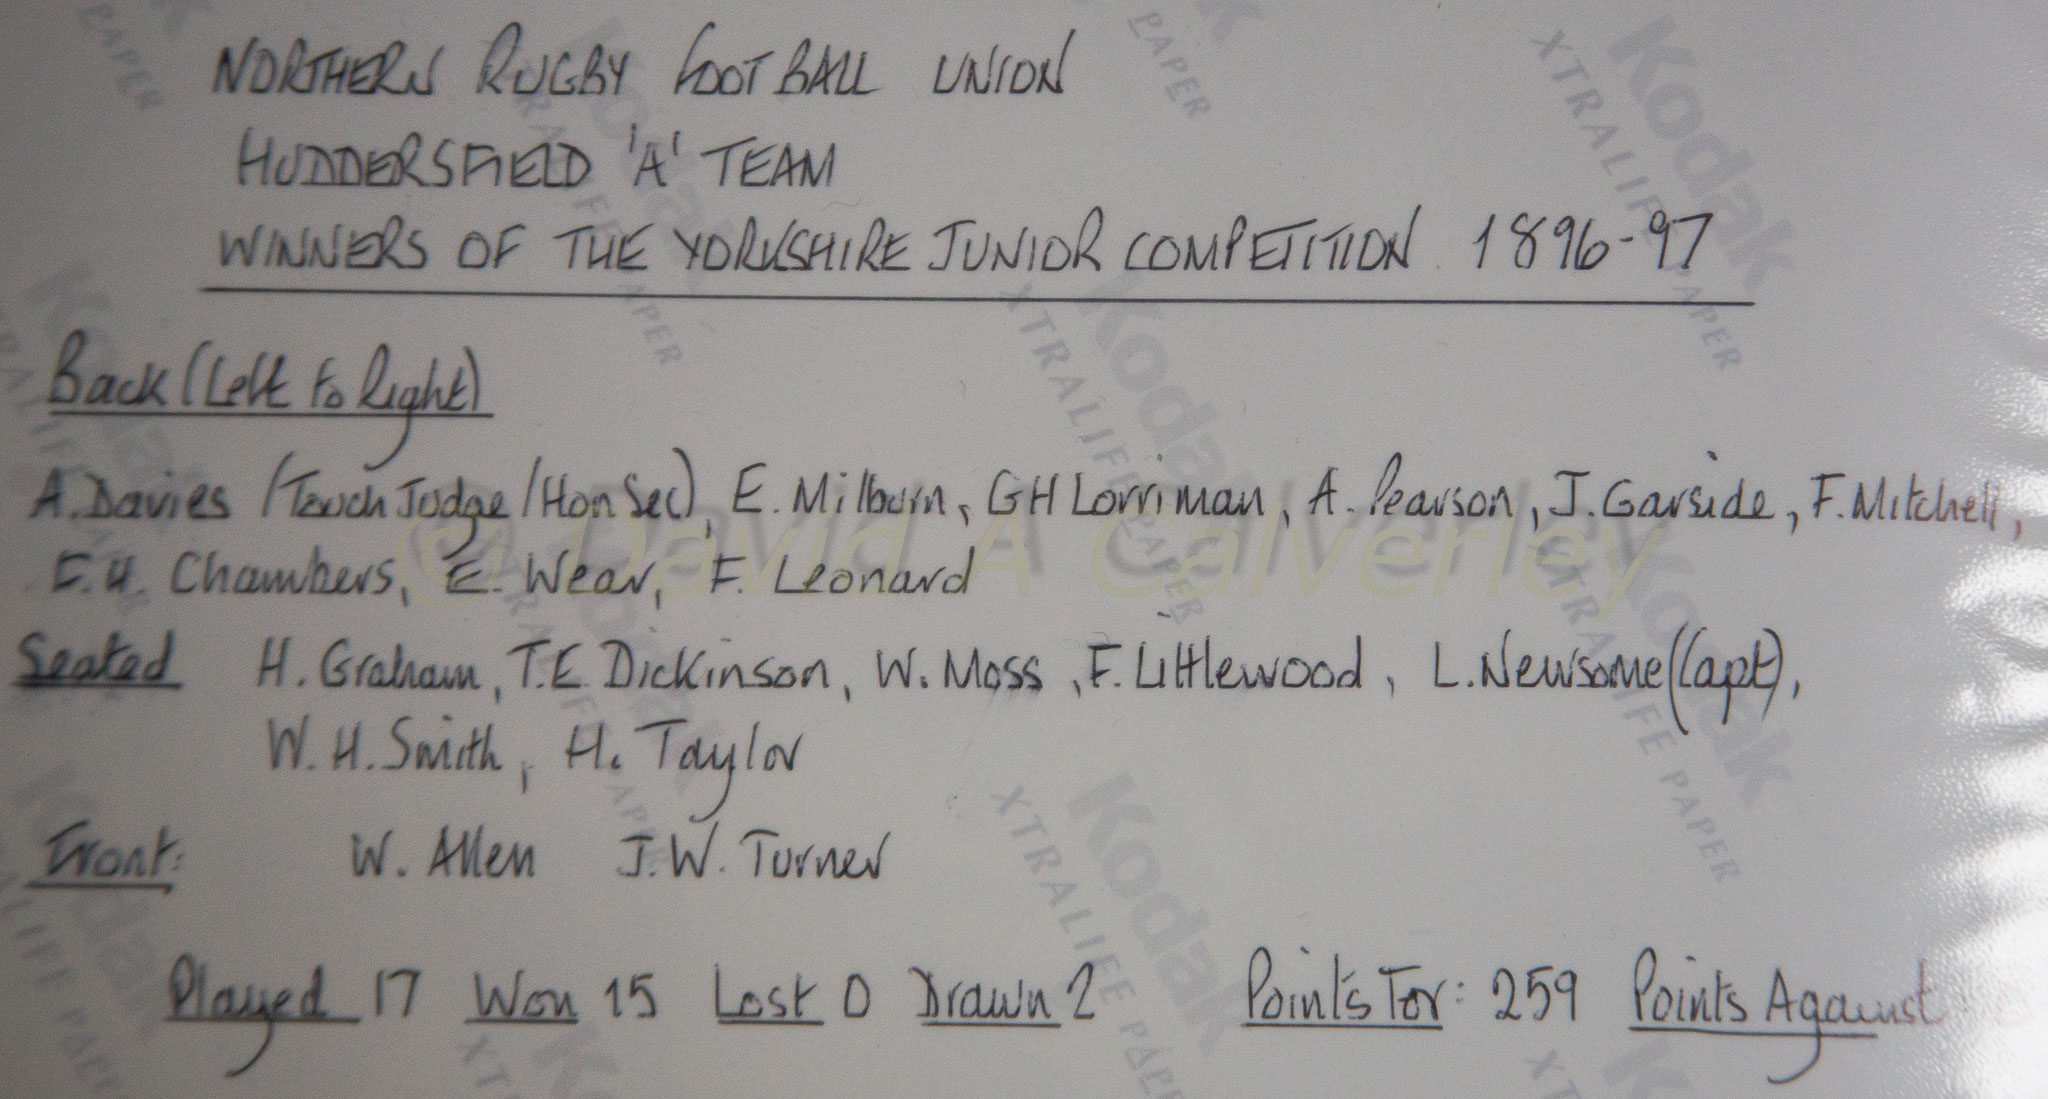 NORTHERN RUGBY FOOTBALL UNION
HUDDERSFIELD 'A' TEAM
WINNERS OF THE YORKSHIRE JUNIOR COMPETITION 1896-97
Back (Left to Right)
A. Davies (Touch Judge/Hon Sec), E. Milburn, GH Lorriman, A. Pearson, J. Garside, F. Mitchell,
E.H. Chambers, E. Wear, F. Leonard
Seated H. Graham, T.E. Dickinson, W. Moss, F. Littlewood, L. Newsome (Capt),
W.H. Smith, H. Taylor
Front: W. Allen J.W. Turner
Played 17 Won 15 Lost 0 Drawn 2 Points For: 259 Points Against
© David A Calverley
Kodak
XTRALIFE PAPER